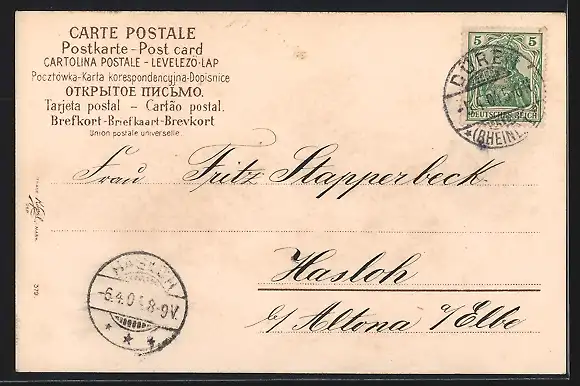 CARTE POSTALE
Postkarte - Post card
CARTOLINA POSTALE - LEVELEZÖ-LAP
Pocztówka-Karta korespondencyjna-Dopisnice
ОТКРЫТОЕ ПИСЬМО.
Tarjeta postal - Cartão postal.
Brefkort-Briefkaart-Brevkort
Union postale universelle.
5 5
DEUTSCHES REICH
DÜREN
(RHEINL.
Frau Fritz Stapperbeck
Hasloh
b/ Altona a/Elbe
HASLOH
-6.4.0 8-9V.
379